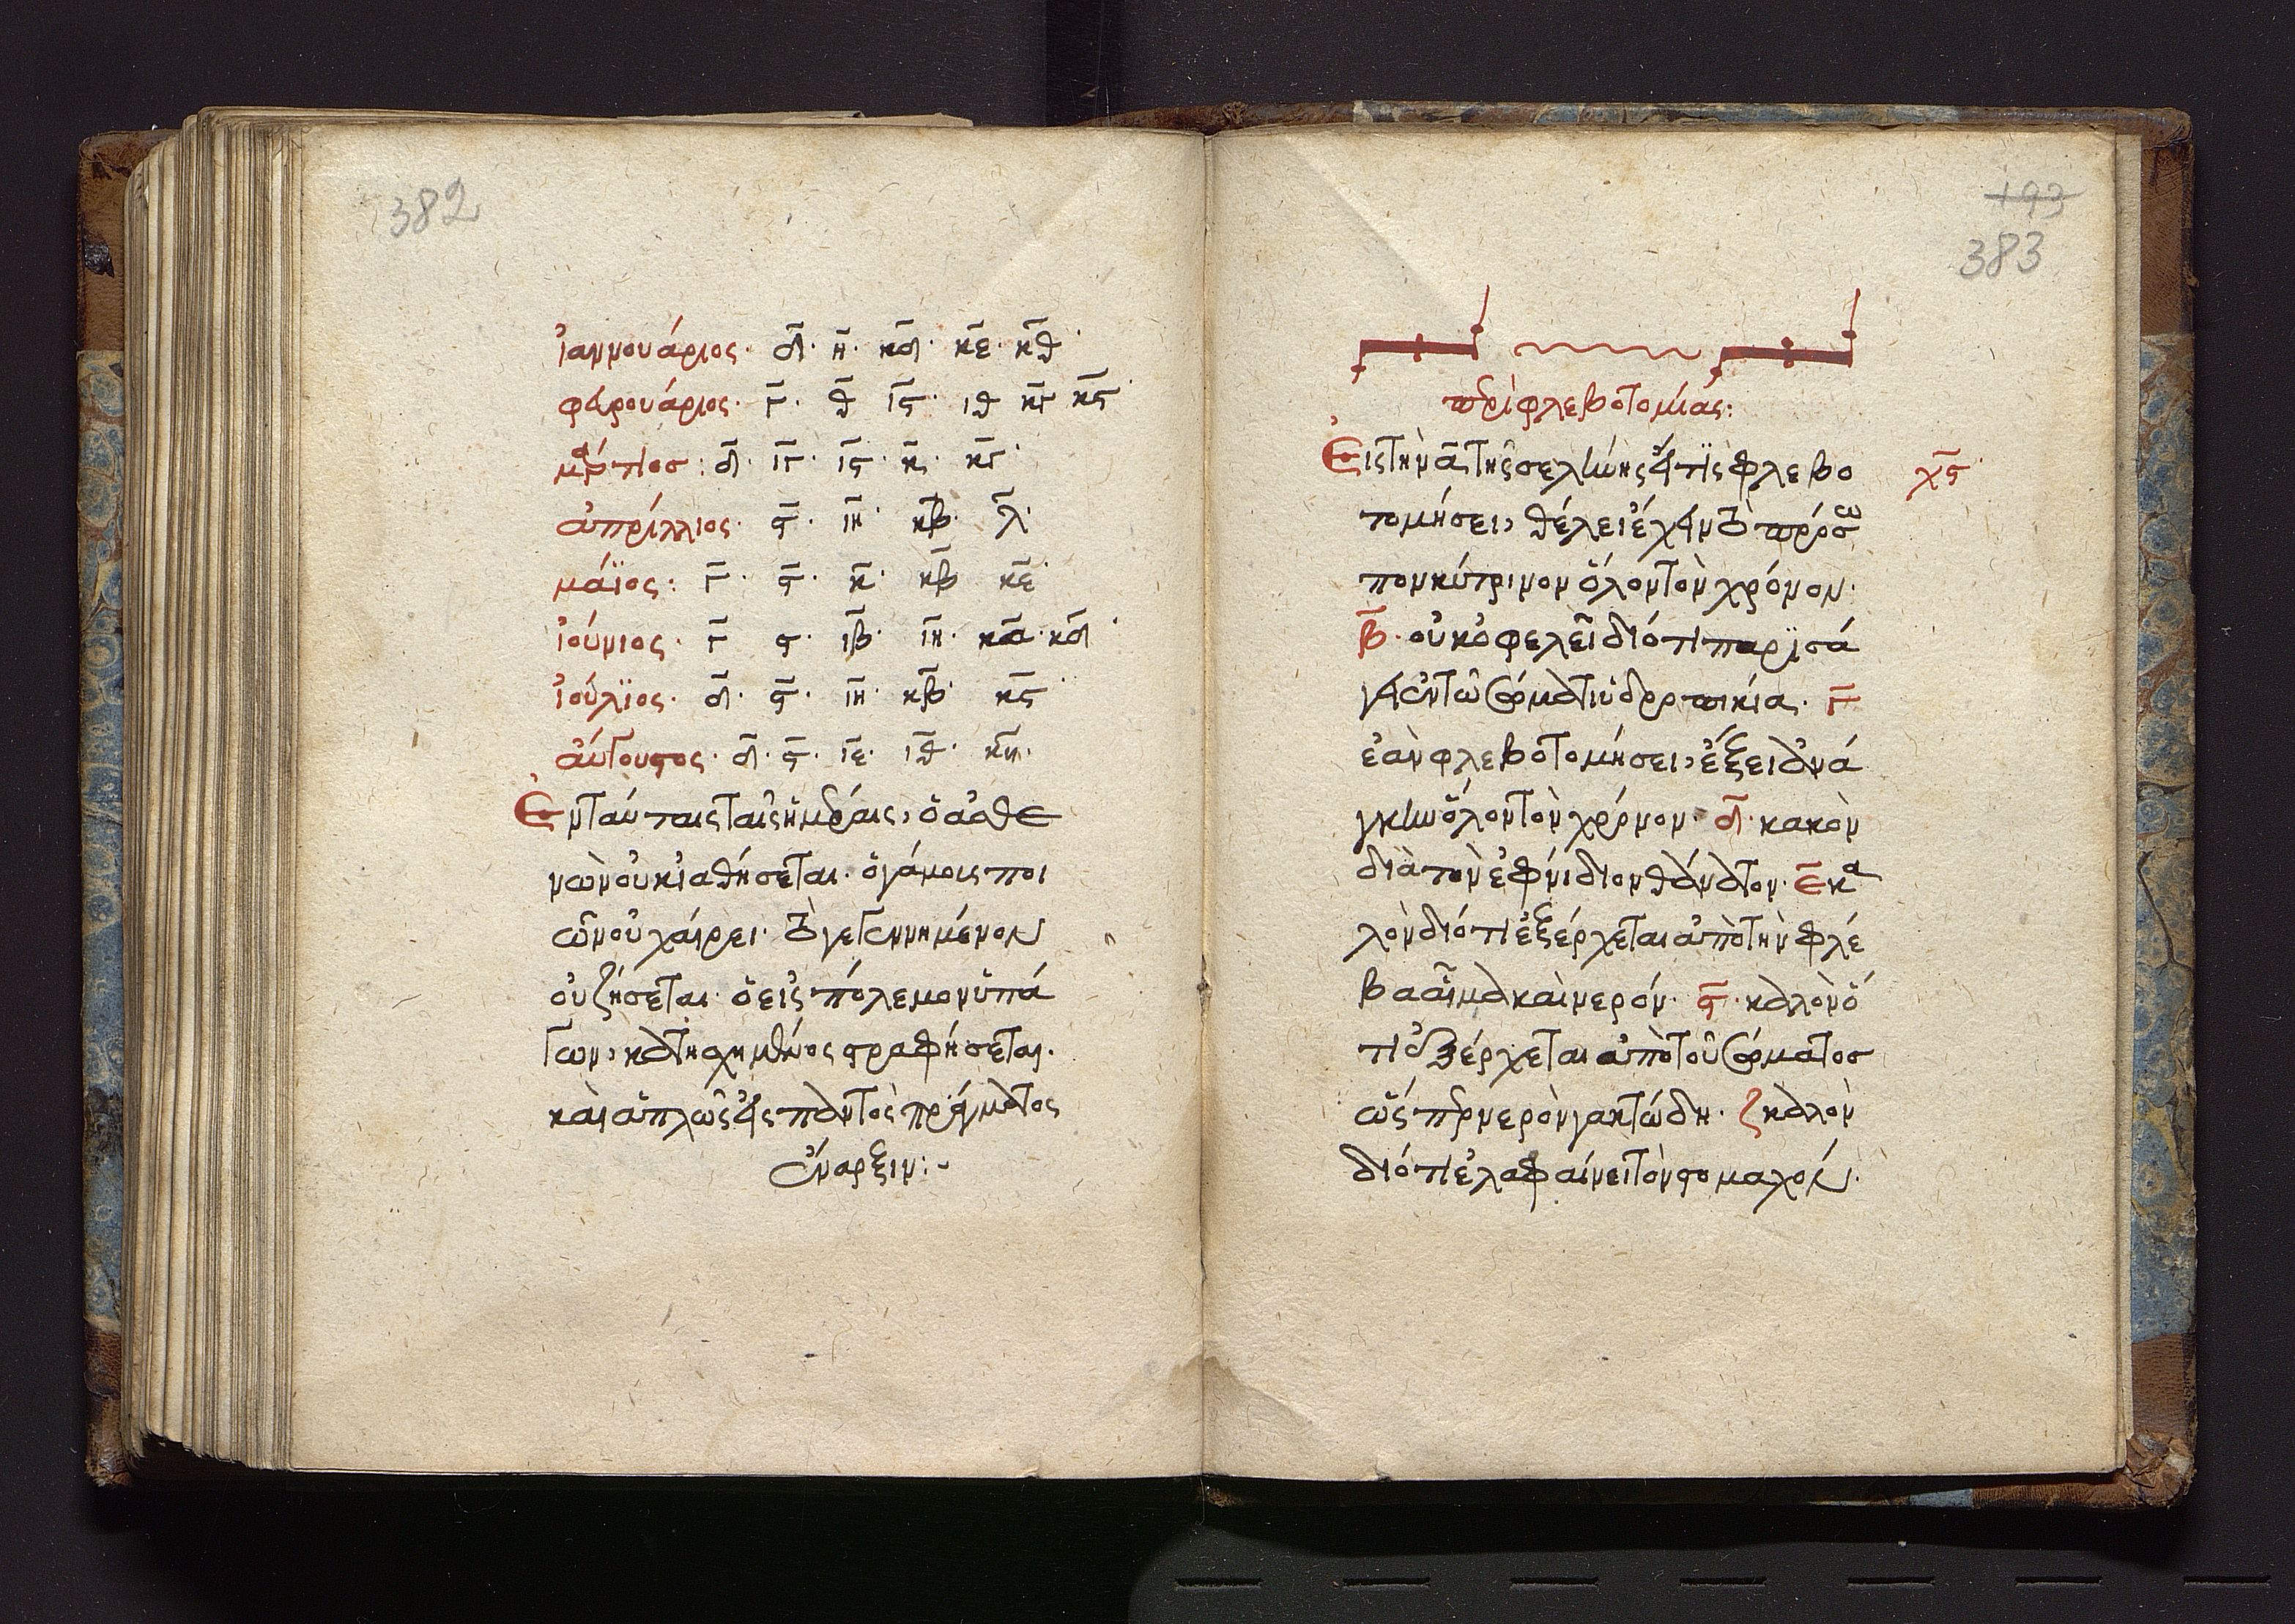 382
ἰαννουάριος· δ̅· η̅· κδ̅· κε̅· κθ̅·
φευρουάριος· γ̅· θ̅ ις̅· ιθ κγ̅ κς̅·
μάρτιος: δ̅· ιγ̅· ις̅· κ̅· κγ̅·
ἀπρίλλιος· ς̅· ιη̅· κβ̅· λ̅·
μάϊος: γ̅· ς̅· κ̅· κβ̅ κε̅·
ἰούνιος· γ̅ ς· ιβ̅· ιη̅· κα̅· κδ̅·
ἰούλϊος· δ̅· ς̅· ιη̅· κβ̅· κς̅·
ἀύγουστος· δ̅· ς̅· ιε̅· ιθ̅· κη̅·
Ἐν ταύταις ταῖς ἡμέραις, ὁ ἀσθε
νῶν οὐκ ἰαθήσεται· ὁ γάμοις ποι
ῶν οὐ χαίρει· τὸ γεγεννημένον
οὐ ζήσεται· ὁ εἰς πόλεμον ὑπά
γων, κατησχημένος στραφήσεται·
καὶ ἁπλῶς εἰς παντὸς πράγματος
ἔναρξιν:~
193
383
περὶ φλεβοτομίας:
Εἰς τὴν α̅ τῆς σελήνης εἴ τις φλεβο
τομήσει, θέλει ἔχειν τὸ πρόσω
πον κύτρινον ὅλον τὸν χρόνον·
χς̅·
β̅· οὐκ ὀφελεῖ διότι παρϊσά
γει ἐν τῶ σώματι ὑδροπικία· γ̅
ἐὰν φλεβοτομήσει, ἕξει ἀνά
γκην ὅλον τὸν χρόνον· δ̅· κακὸν
διὰ τὸν ἐφνίδιον θάνατον· ε̅ κα
λὸν διότι ἐξέρχεται ἀπὸ τὴν φλέ
βα αἷμα καὶ νερόν· ς̅· καλὸν ὅ
τι ἐξέρχεται ἀπὸ τοῦ σώματος
ὥσπερ νερὸν γακτώδη· ζ καλὸν
διότι ἐλαφαίνει τὸν στομαχον·